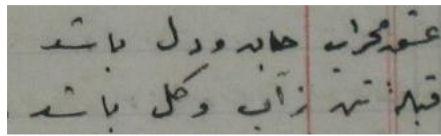 عشق محراب جان و دل باشد
قبلهٔ تن ز آب و گل باشد